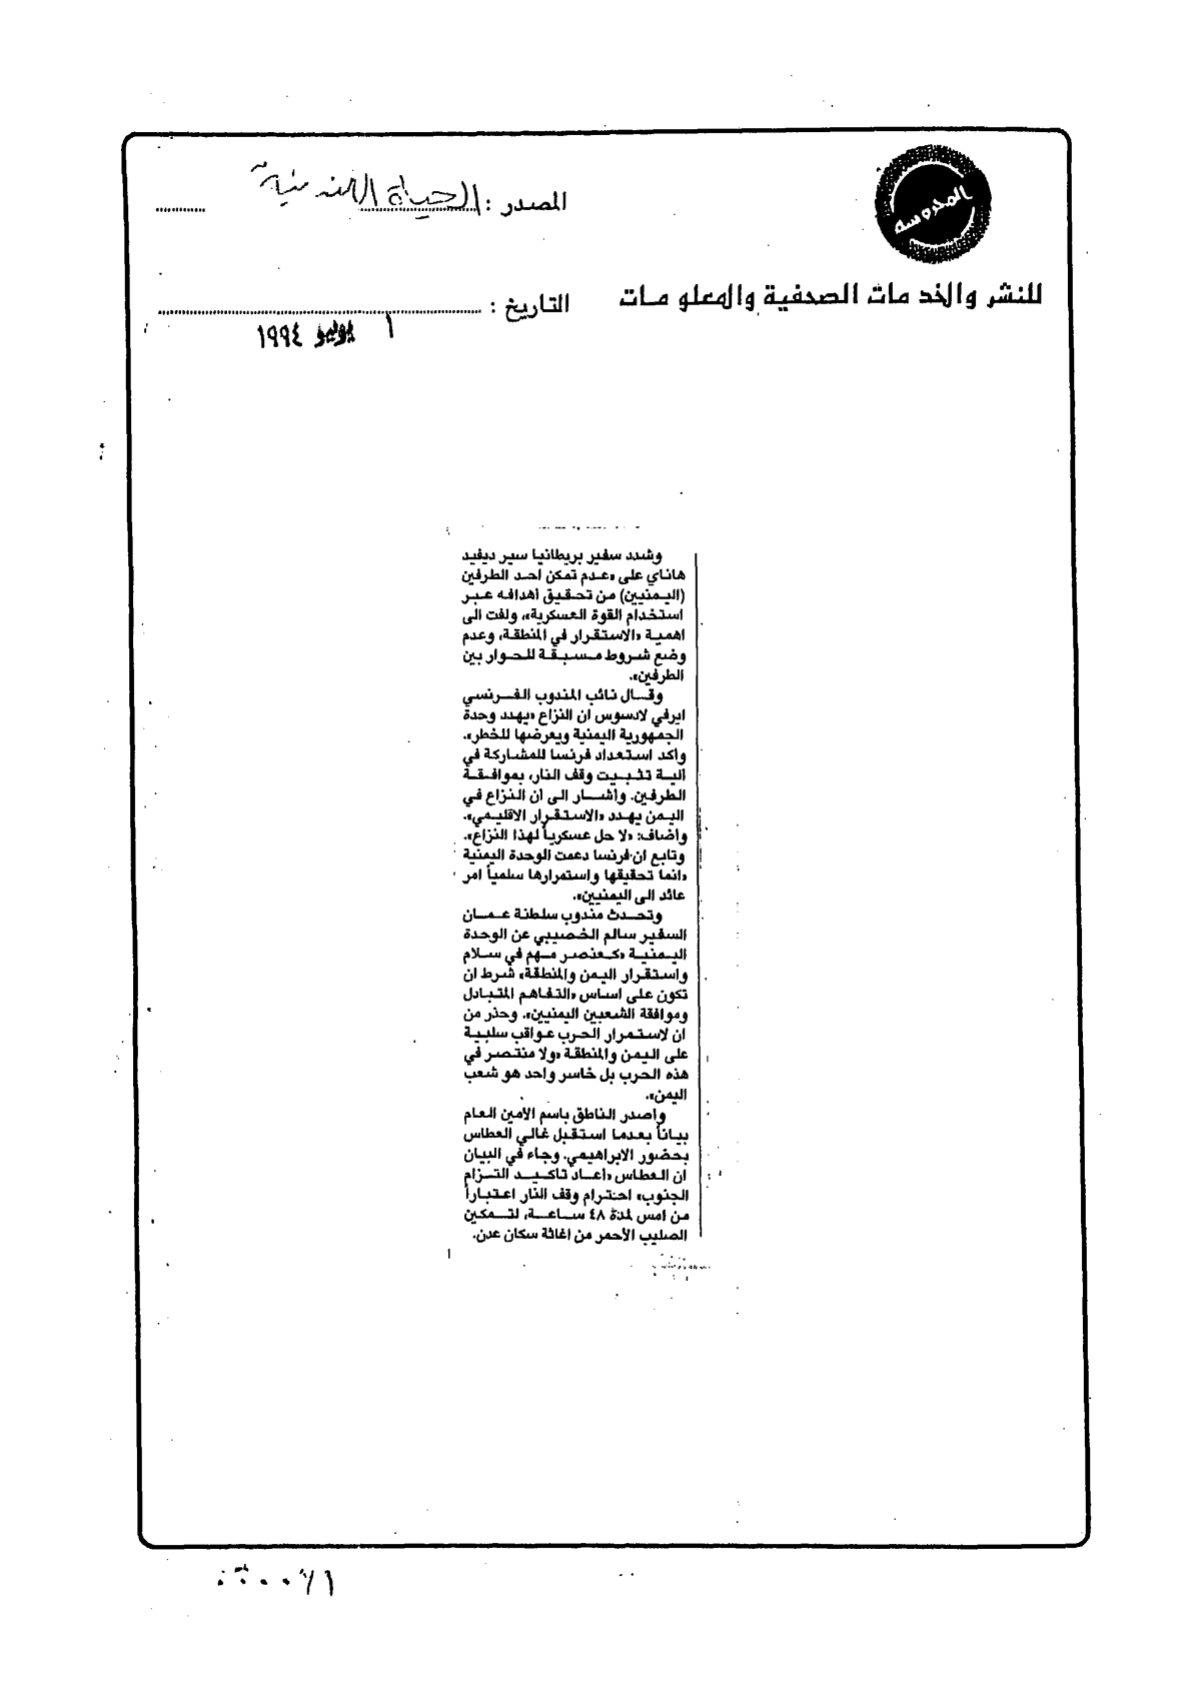 المحروسه
المصدر : الحياة اللندنية
للنشر والخدمات الصحفية والمعلومات
التاريخ :
١ يوليو ١٩٩٤
وشدد سفير بريطانيا سير ديفيد
هاناي على «عدم تمكن احد الطرفين
(اليمنيين) من تحقيق اهدافه عبر
استخدام القوة العسكرية»، ولفت الى
اهمية «الاستقرار في المنطقة، وعدم
وضع شروط مسبقة للحوار بين
الطرفين».
وقال نائب المندوب الفرنسي
ايرفي لادسوس ان النزاع «يهدد وحدة
الجمهورية اليمنية ويعرضها للخطر».
واكد استعداد فرنسا للمشاركة في
آلية تثبيت وقف النار، بموافقة
الطرفين. واشار الى ان النزاع في
اليمن يهدد «الاستقرار الاقليمي».
واضاف: «لا حل عسكرياً لهذا النزاع».
وتابع ان فرنسا دعمت الوحدة اليمنية
«انما تحقيقها واستمرارها سلمياً امر
عائد الى اليمنيين».
وتحدث مندوب سلطنة عمان
السفير سالم الخصيبي عن الوحدة
اليمنية «كعنصر مهم في سلام
واستقرار اليمن والمنطقة» شرط ان
تكون على اساس «التفاهم المتبادل
وموافقة الشعبين اليمنيين». وحذر من
ان لاستمرار الحرب عواقب سلبية
على اليمن والمنطقة «ولا منتصر في
هذه الحرب بل خاسر واحد هو شعب
اليمن».
واصدر الناطق باسم الأمين العام
بياناً بعدما استقبل غالي العطاس
بحضور الابراهيمي. وجاء في البيان
ان العطاس «اعاد تاكيد التزام
الجنوب» احترام وقف النار اعتباراً
من امس لمدة ٤٨ ساعة، لتمكين
الصليب الأحمر من اغاثة سكان عدن.